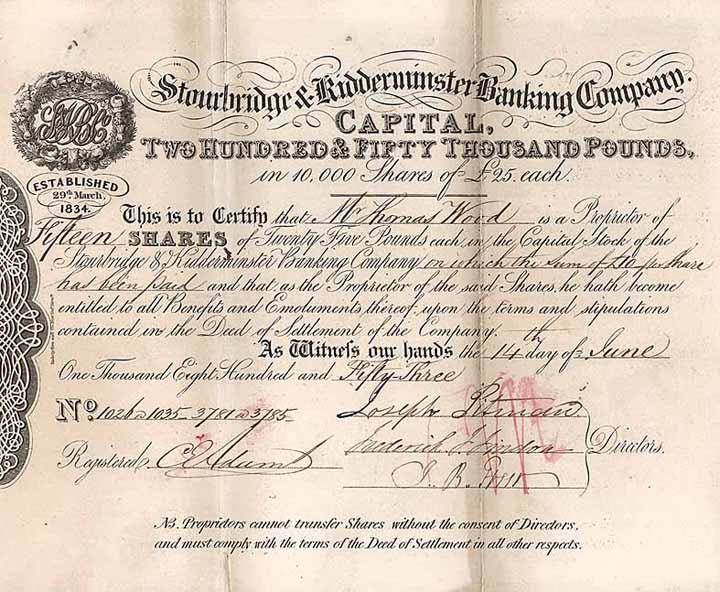 Stourbridge & Kidderminster Banking Company.
CAPITAL,
TWO HUNDRED & FIFTY THOUSAND POUNDS,
in 10,000 Shares of £25 each.
ESTABLISHED
29th March,
1834.
This is to Certify that Mr Thomas Wood is a Proprietor of
Fifteen SHARES of Twenty Five Pounds each in the Capital Stock of the
Stourbridge & Kidderminster Banking Company on which the Sum of £10 per share
has been paid and that, as the Proprietor of the said Shares, he hath become
entitled to all Benefits and Emoluments thereof, upon the terms and stipulations
contained in the Deed of Settlement of the Company.
As Witness our hands the 14th day of June
One Thousand Eight Hundred and Fifty Three
No. 1026 a 1035 - 3781 a 3785
Joseph Pitman
Registered,
Frederick
Directors.
J. B.
NB. Proprietors cannot transfer Shares without the consent of Directors,
and must comply with the terms of the Deed of Settlement in all other respects.